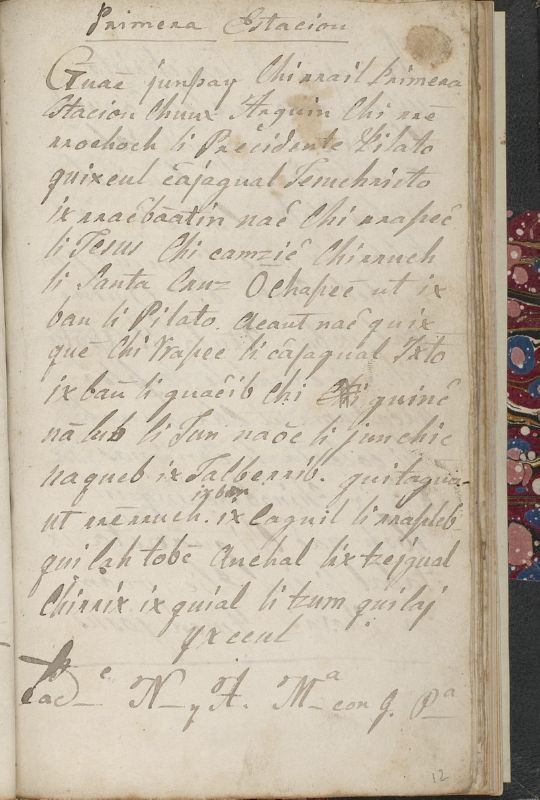 Primera Estacion
Guae junpay Chi rrail Primera
Stacion Chunx Arquin Chi rre
rrochoch li Precidente Pilato
quixcul cajagual Jesuchristo
ix rracbāatin nac Chi rrapec
li Jesus Chi camzic Chirruch
li Santa Cruz Ochapec ut ix
ban li Pilato. Acaut nac quix
que Chi Krapec li cajagual Ixto
ix ban li guacib Chi quinc
na lub li Jun nace li junchic
naqueb ix Talberrib. quitagua-
ixban
ut rrerruch. ix Caguil li rrapleb
qui lah tobe Anchal lix tzejgual
Chirrix ix quial li tzum quilaj
yx ceul
Pad e N y A. M a con g. P a
12